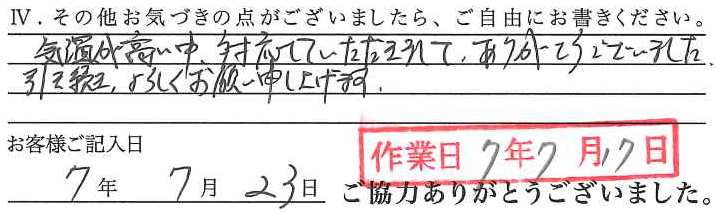 Ⅳ．その他お気づきの点がございましたら、ご自由にお書きください。
気温が高い中、対応していただきまして、ありがとうございました。
引き続き、よろしくお願い申し上げます。
お客様ご記入日
作業日 7年7月17日
7年 7月 23日 ご協力ありがとうございました。